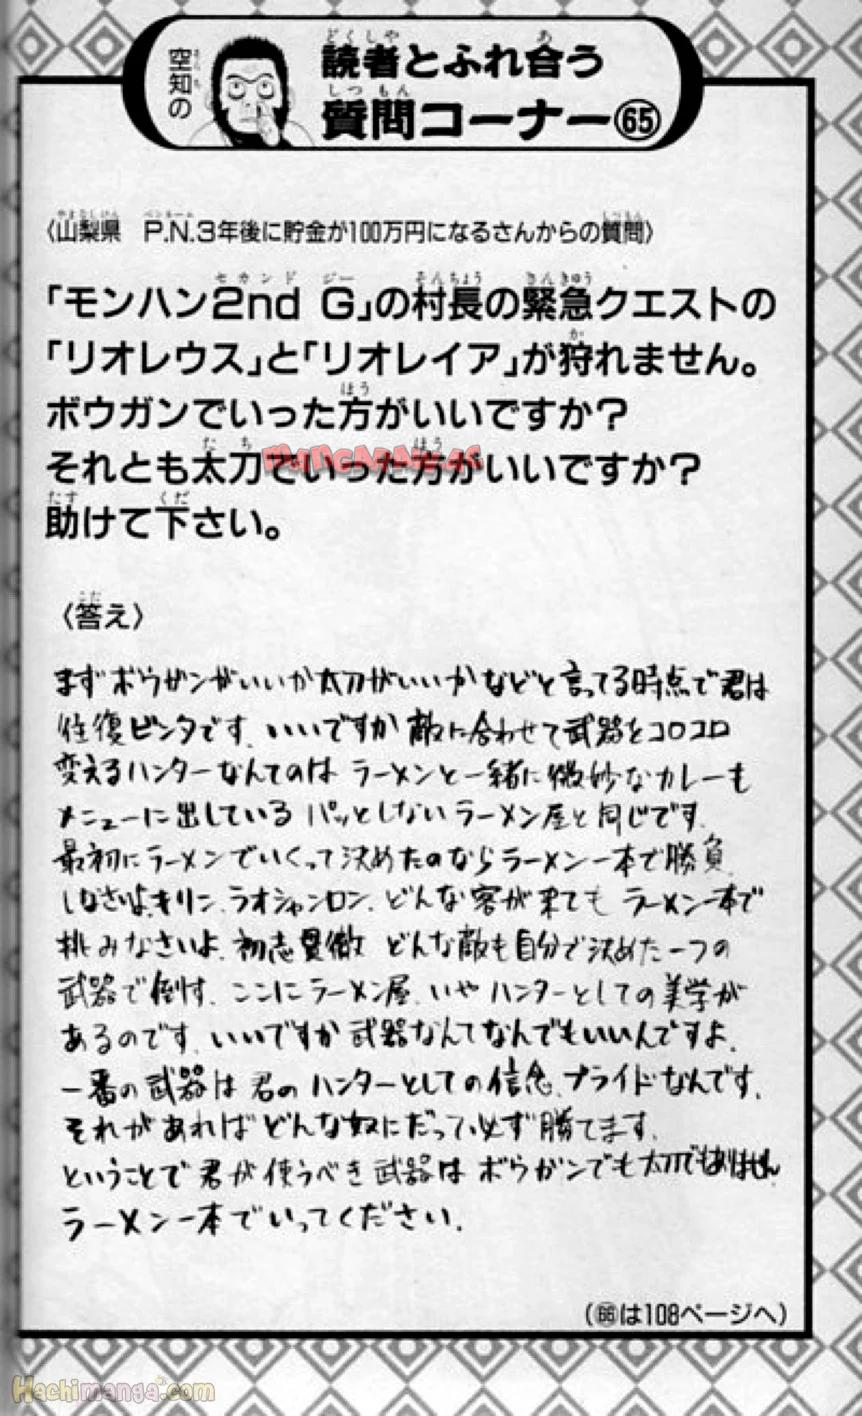 空知の
読者とふれ合う
質問コーナー65
〈山梨県　P.N.3年後に貯金が100万円になるさんからの質問〉
「モンハン2nd G」の村長の緊急クエストの
「リオレウス」と「リオレイア」が狩れません。
ボウガンでいった方がいいですか?
それとも太刀でいった方がいいですか?
助けて下さい。
〈答え〉
まずボウガンがいいか太刀がいいかなどと言ってる時点で君は
往復ビンタです。いいですか敵に合わせて武器をコロコロ
変えるハンターなんてのはラーメンと一緒に微妙なカレーも
メニューに出しているパッとしないラーメン屋と同じです。
最初にラーメンでいくって決めたのならラーメン一本で勝負
しなさいよ。キリン、ラオシャンロン、どんな客が来てもラーメン一本で
挑みなさいよ。初志貫徹 どんな敵も自分で決めた一つの
武器で倒す。ここにラーメン屋、いやハンターとしての美学が
あるのです。いいですか武器なんてなんでもいいんですよ。
一番の武器は君のハンターとしての信念、プライドなんです。
それがあればどんな奴にだって必ず勝てます。
ということで君が使うべき武器はボウガンでも太刀でもありません
ラーメン一本でいってください。
(66は108ページへ)
Hachimanga.com